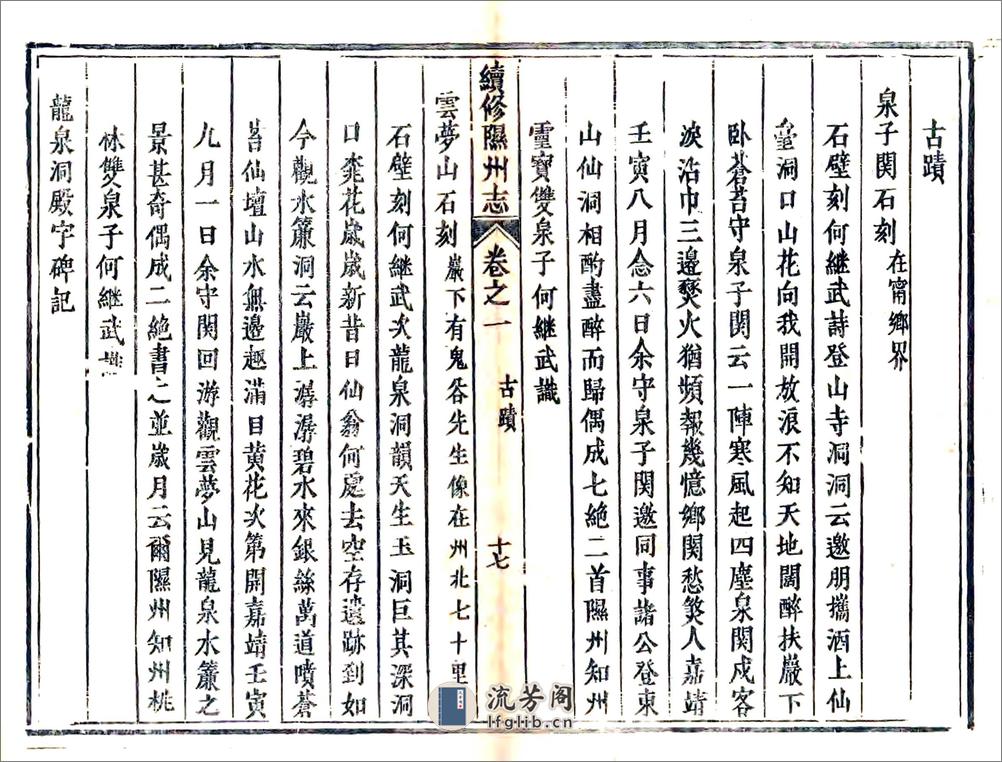 古蹟
泉子関石刻在甯鄉界
石壁刻何继武詩登山寺洞洞云邀朋攜酒上仙
臺洞口山花向我開放浪不知天地闊醉扶巖下
卧蒼苔守泉子関云一陣寒風起四塵泉関戍客
淚沾巾三邊燹火猶頻報幾憶鄉関愁煞人嘉靖
壬寅八月念六日余守泉子関邀同事諸公登東
山仙洞相酌盡醉而歸偶成七絶二首隰州知州
靈寶雙泉子何继武識
續修隰州志
卷之一
古蹟
十七
雲夢山石刻巖下有鬼谷先生像在州北七十里
石壁刻何继武次龍泉洞韻天生玉洞巨其深洞
口桃花歲歲新昔日仙翁何處去空存遺跡到如
今觀水簾洞云巖上潺潺碧水來銀絲萬道噴蒼
苔仙壇山水無邊趣滿目黄花次第開嘉靖壬寅
九月一日余守関回游觀雲夢山見龍泉水簾之
景甚奇偶成二絶書之並歲月云爾隰州知州桃
林雙泉子何继武識
龍泉洞殿字碑記
流芳阁
lfglib.cn